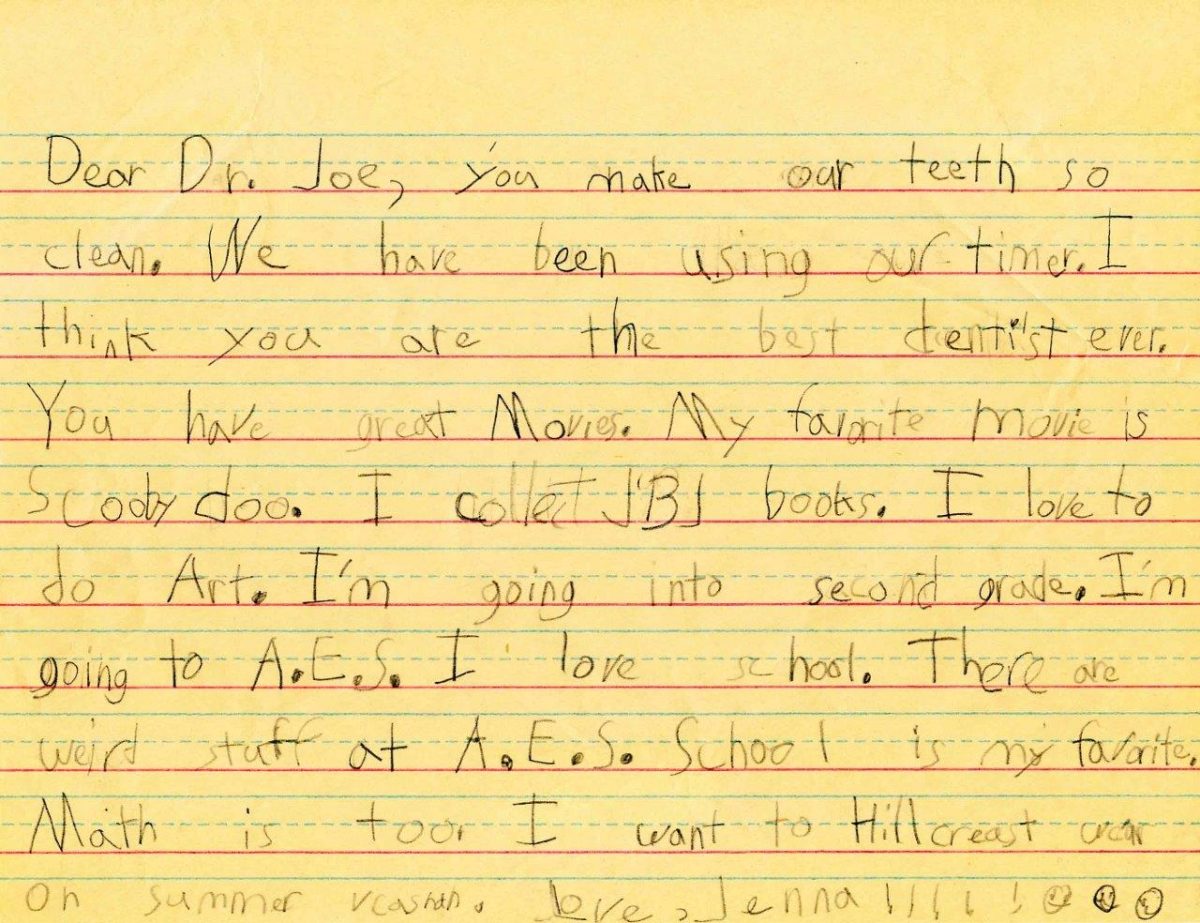 Dear Dr. Joe, you make our teeth so
clean. We have been using our timer. I
think you are the best dentist ever.
You have great Movies. My favorite movie is
Scooby doo. I collect JBJ books. I love to
do Art. I'm going into second grade. I'm
going to A.E.S. I love school. There are
weird stuff at A.E.S. School is my favorite.
Math is too. I want to Hillcreast
on summer Love, Jenna !!!!!